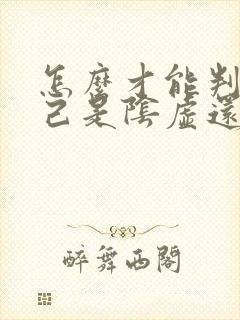 怎麼才能判
己是陰虛還
醉舞西閣